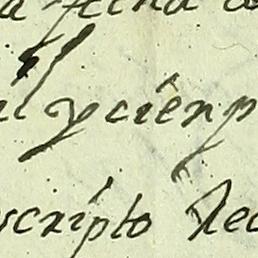 a fecha de
il y cien p
scripto Rec